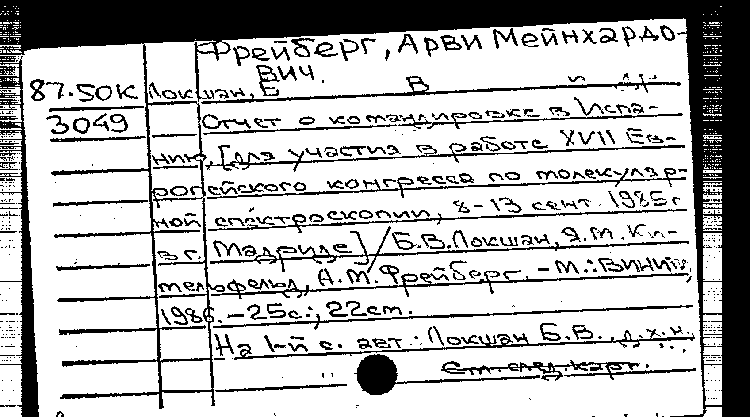 Фрейберг, Арви Мейнхардо-
вич.
87.50К Локшан, Б В и др
3049 Отчет о командировке в Испа-
нию, [для участия в работе XVII Ев-
ропейского конгресса по молекуляр-
ной спектроскопии, 8-13 сент. 1985г
в г. Мадриде] / Б.В. Локшан, Я.М. Ки-
тельфельд, А.М. Фрейберг. - М.: ВИНИТИ,
1986. - 25с.; 22см.
На 1-й с. авт.: Локшан Б.В., д.х.н.
См. след. карт.